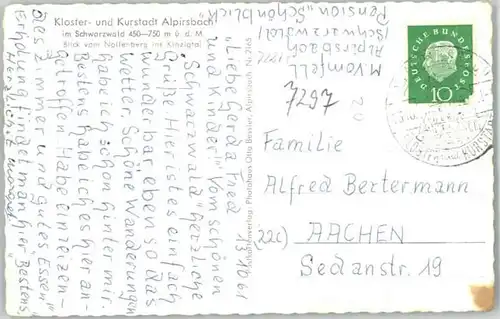 Kloster- und Kurstadt Alpirsbach
im Schwarzwald 450–750 m ü. d. M
Blick vom Nollenberg ins Kinzigtal
M. Vomfell
Alpirsbach
(Schwarzwald)
Pension "Schönblick
7297
13.10.61
"Liebe Gerda Fred
und Kinder!" Vom schönen
Schwarzwald "herzliche
Grüße Hier ist es einfach
wunderbar eben so das
Wetter. Schöne Wanderungen
habe ich schon hinter mir.
Bestens habe ich es hier an-
getroffen. Habe ein reizen-
des Zimmer und gutes Essen"
Erholung findet man hier "Bestens.
Herzlichst
Photohaus Otto Beissler, Alpirsbach
DEUTSCHE BUNDESPOST
10
Familie
Alfred Bertermann
(22c) AACHEN
Sedanstr. 19